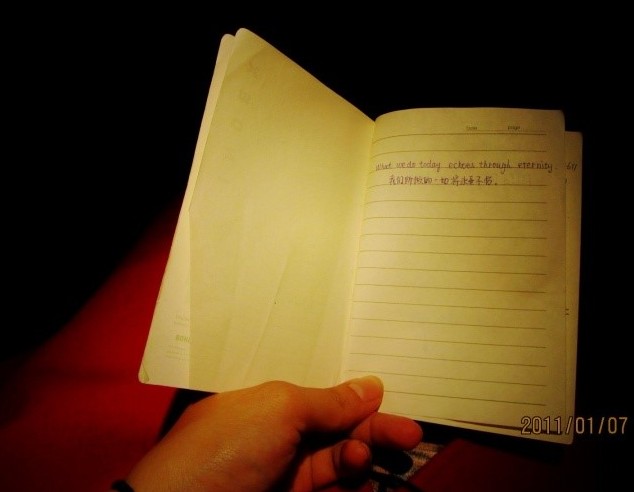 What we do today echoes through eternity.
我们所做的一切将永垂不朽。
2011/01/07